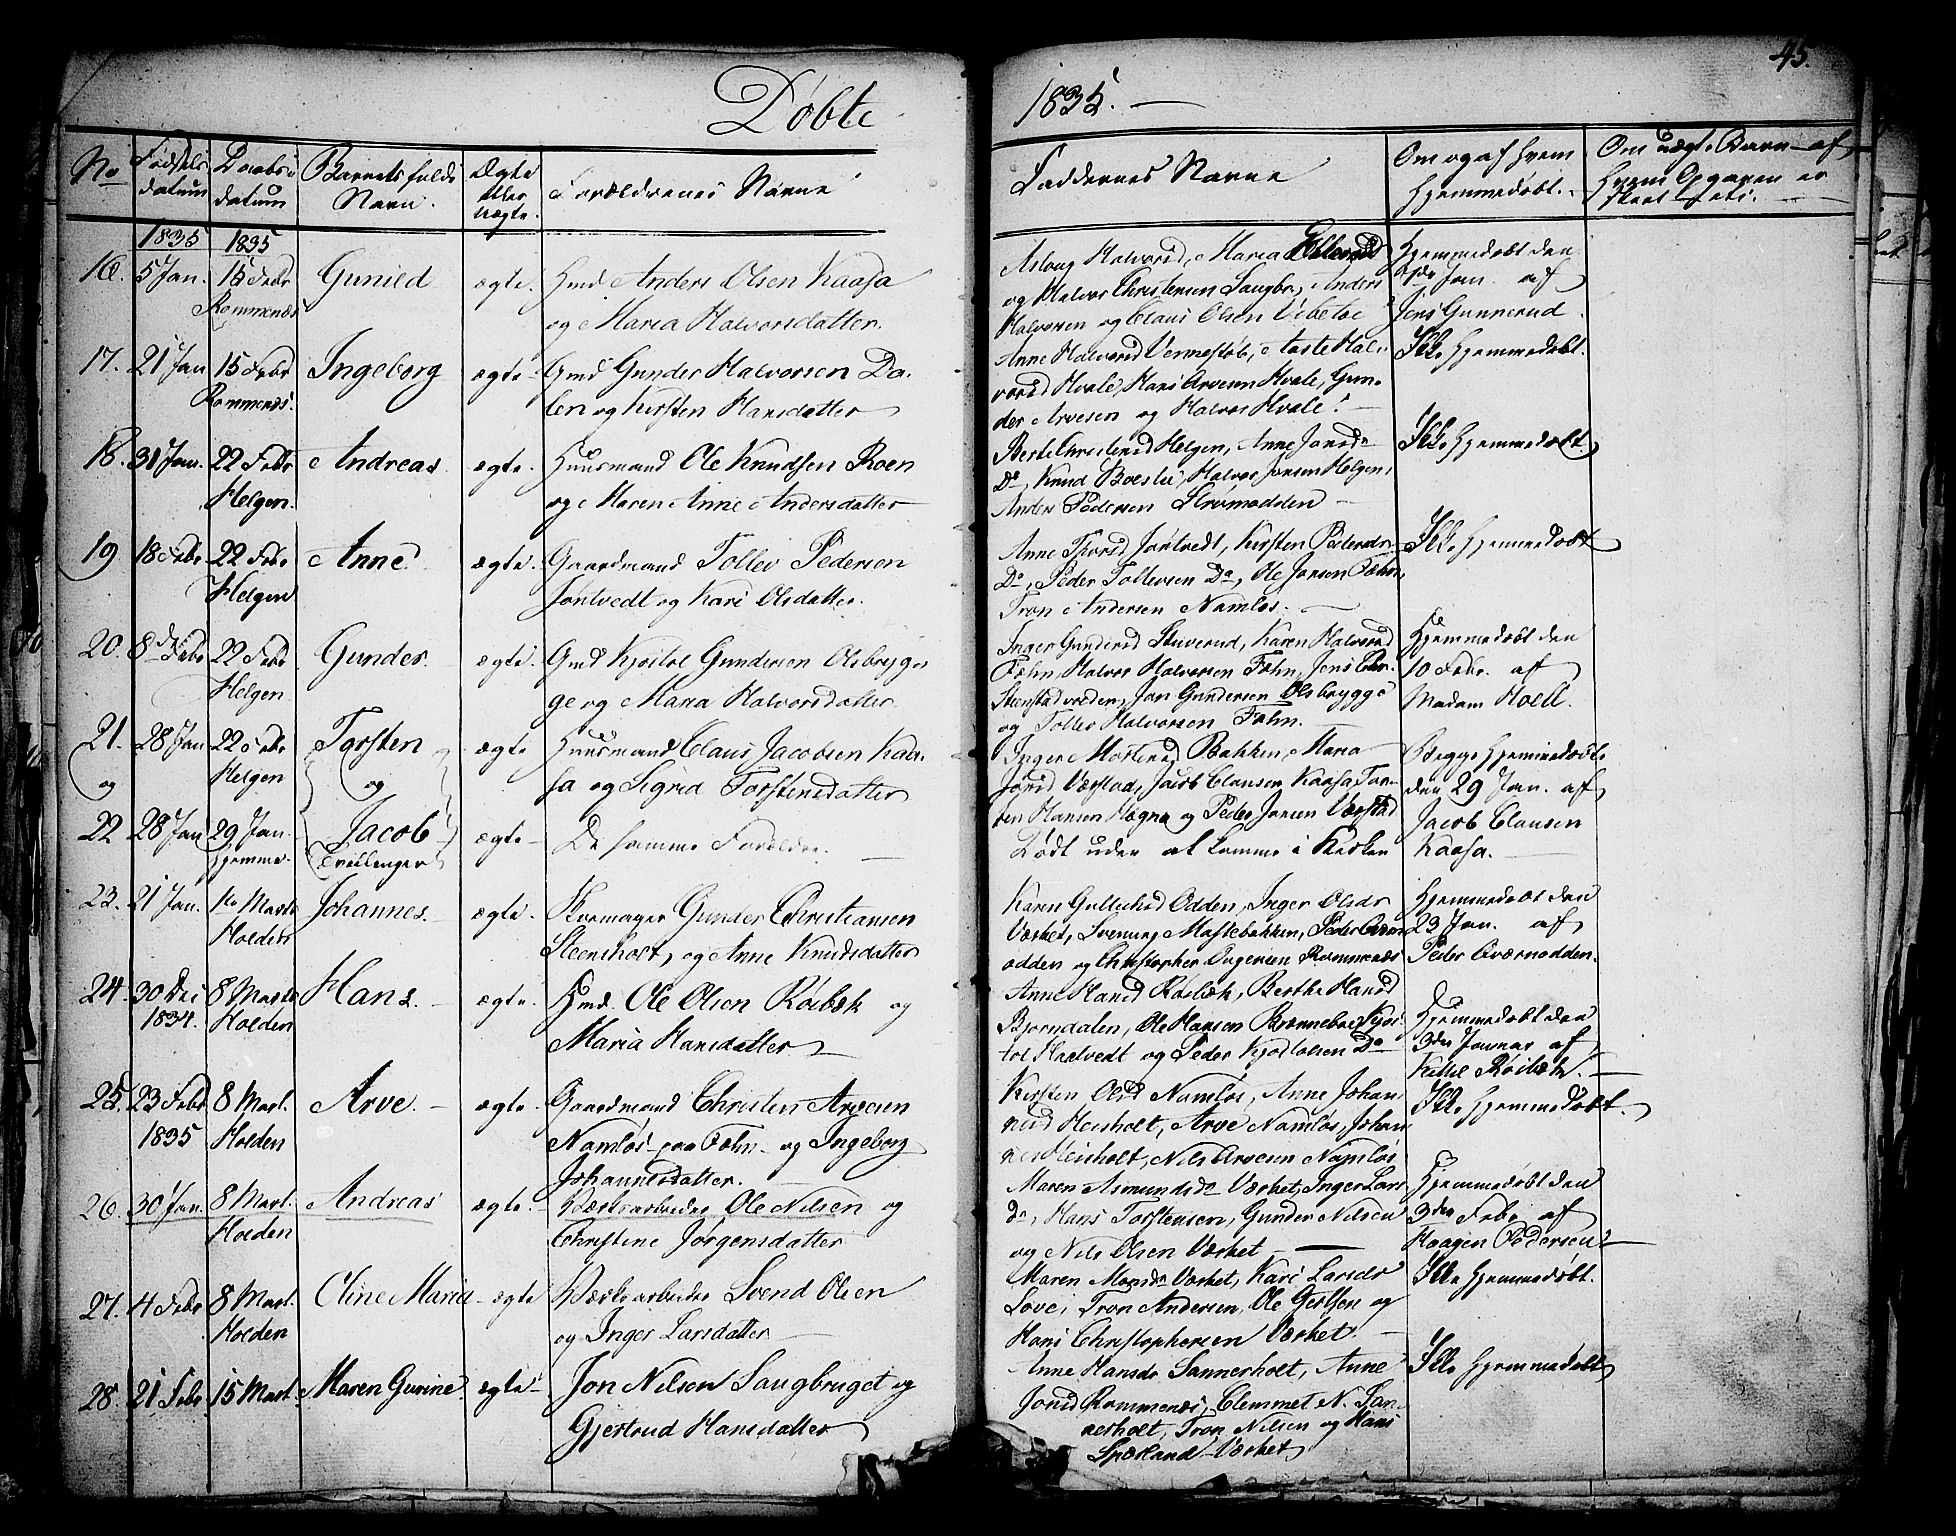 Døbte
1835.
45.
No
Fødsels datum
Daabs datum
Barnets fulde Navn.
Ægte eller uægte.
Forældrenes Navne
Faddernes Navne
Om og af hvem hjemmedøbt.
Om uægte Barn af hvem Opgaven er skeet
1835 1835
16. 5 Jan. 15 Febr Gunild ægte. Gmd Anders Olsen Kaasa
Rommenæs og Maria Halvorsdatter.
Asloug Halvorsd, Maria
og Halvor Christensen Saugbr, Anders
Halvorsen og Claus Olsen Vibetoe
Hjemmedøbt den
Jan. af
Jens Gunnerud
17. 21 Jan 15 Febr Ingeborg ægte Gmd Gunder Halvorsen Da-
Rommenæs. len og Kirsten Hansdatter
Anne Halvorsd Vennestøb, Aaste Hal-
vorsd Hvale, Hans Arvesen Hvale, Gun-
der Arvesen og Halvor Hvale.
Ikke Hjemmedøbt.
18. 31 Jan. 22 Febr Andreas. ægte. Huusmand Ole Knudsen Roen
Helgen. og Maren Anne Andersdatter
Berte Christensd Helgen, Anne Jonsd
Do, Knud Halvor Jonsen Helgen,
Anders Pedersen
Ikke Hjemmedøbt
19 18 Febr 22 Febr Anne ægte. Gaardmand Tollev Pedersen
Helgen Jontvedt og Kari Olsdatter.
Anne Thorsd Jontvedt, Kirsten Pedersdr
Do, Peder Tollevsen Do, Ole Jonsen Fæhn,
Tron Andersen Namløs.
Ikke Hjemmedøbt
20. 8de Febr 22 Febr Gunder. ægte. Gmd Kjøstol Gundersen Olsbryg-
Helgen ge og Maria Halvorsdatter
Inger Gundersd Stuverud, Karen Halvorsd
Fæhn, Halvor Halvorsen Fæhn, Jens Chr.
Steenstadvreden, Jon Gundersen Olsbrygge
og Tollev Halvorsen Fæhn.
Hjemmedøbt den
10 Febr. af
Madam Holt.
21. 28 Jan 22 Febr Torsten ægte Huusmand Claus Jacobsen Kaa-
og Helgen og sa og Sigrid Torstensdatter
Inger Mortensd Bakken, Maria
Jonsd Værstad, Jacob Clausen Kaasa, Tor-
sten Hansen Hægna og Peder Jonsen Værstad
Begge Hjemmedøbt
den 29 Jan. af
Jacob Clausen
Kaasa.
22 28 Jan 29 Jan. Jacob ægte De samme Forældre.
hjemme. Tvillinger
Dødt uden at komme i Kirken
23. 21 Jan. 1te Marts Johannes. ægte. Skomager Gunder Christiansen
Holden Steensholt, og Anne Knudsdatter
Karen Gullichsd Odden, Inger Olsdr
Værket, Svenung Mastebakken, Peder
odden og Christopher Rommenæs
Hjemmedøbt den
23 Jan. af
Peder Qværnodden.
24. 30 Dec 8 Marts Hans. ægte. Gmd. Ole Olsen Røibæk og
1834. Holden Maria Hansdatter
Anne Hansd Røibæk, Berthe Hansd
Bjørndalen, Ole Hansen Kjøs-
tol Hactvedt og Peder Kjostolsen Do
Hjemmedøbt den
3die Januar af
Røibæk.
25. 23 Febr 8 Mart. Arve. ægte. Gaardmand Christen Arvesen
1835 Holden Namløs paa Fæhn og Ingeborg
Johannesdatter.
Kirsten Olsd Namløs, Anne Johan-
nesd Heisholt, Arve Namløs, Johan-
nes Heisholt, Nils Arvesen Namløs
Ikke Hjemmedøbt.
26. 30 Jan. 8 Mart. Andreas ægte. Værksarbeider Ole Nilsen og
Holden Christine Jørgensdatter
Maren Asmundsdr Værket, Inger Lars
dr, Hans Torstensen, Gunder Nilsen
og Nils Olsen Værket
Hjemmedøbt den
3die Febr af
Haagen Pedersen.
27. 4 Febr 8 Mart. Oline Maria ægte Værksarbeider Svend Olsen
Holden og Inger Larsdatter
Maren Monsdr Værket, Kari Larsdr
Love, Tron Andersen, Ole Gertsen og
Hans Christophersen Værket.
Ikke Hjemmedøbt.
28. 21 Febr 15 Mart. Maren Gurine ægte Jon Nilsen Saugbruget og
Gjertrud Hansdatter
Anne Hansdr Sannerholt, Anne
Jonsd Rommenæs, Clemmet N. San-
nerholt, Tron Nilsen og Hans
Spækland Værket
Ikke Hjemmedøbt